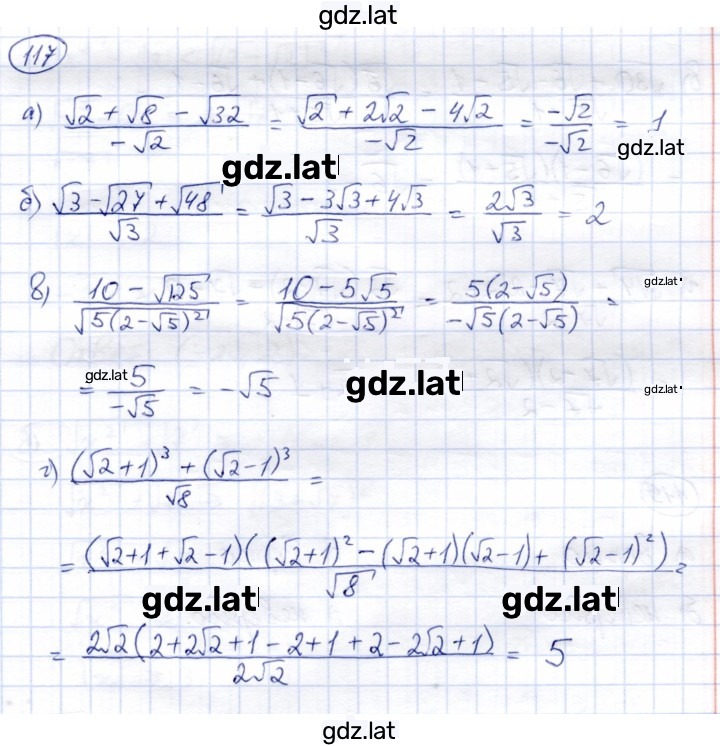 gdz.lat
117
а) (√2 + √8 − √32)/(−√2) = (√2 + 2√2 − 4√2)/(−√2) = (−√2)/(−√2) = 1
gdz.lat
gdz.lat
б) (√3 − √27 + √48)/√3 = (√3 − 3√3 + 4√3)/√3 = 2√3/√3 = 2
в) (10 − √125)/√(5(2−√5)²) = (10 − 5√5)/√(5(2−√5)²) = 5(2−√5)/(−√5(2−√5)) =
gdz.lat
= 5/(−√5) = −√5
gdz.lat
gdz.lat
gdz.lat
г) ((√2+1)³ + (√2−1)³)/√8 =
= (√2+1+√2−1)((√2+1)² − (√2+1)(√2−1) + (√2−1)²)/√8 =
gdz.lat
gdz.lat
= 2√2(2+2√2+1−2+1+2−2√2+1)/(2√2) = 5
gdz.lat